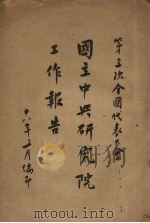 第三次全國代表大會
國立中央研究院
工作報告
十八年三月編印